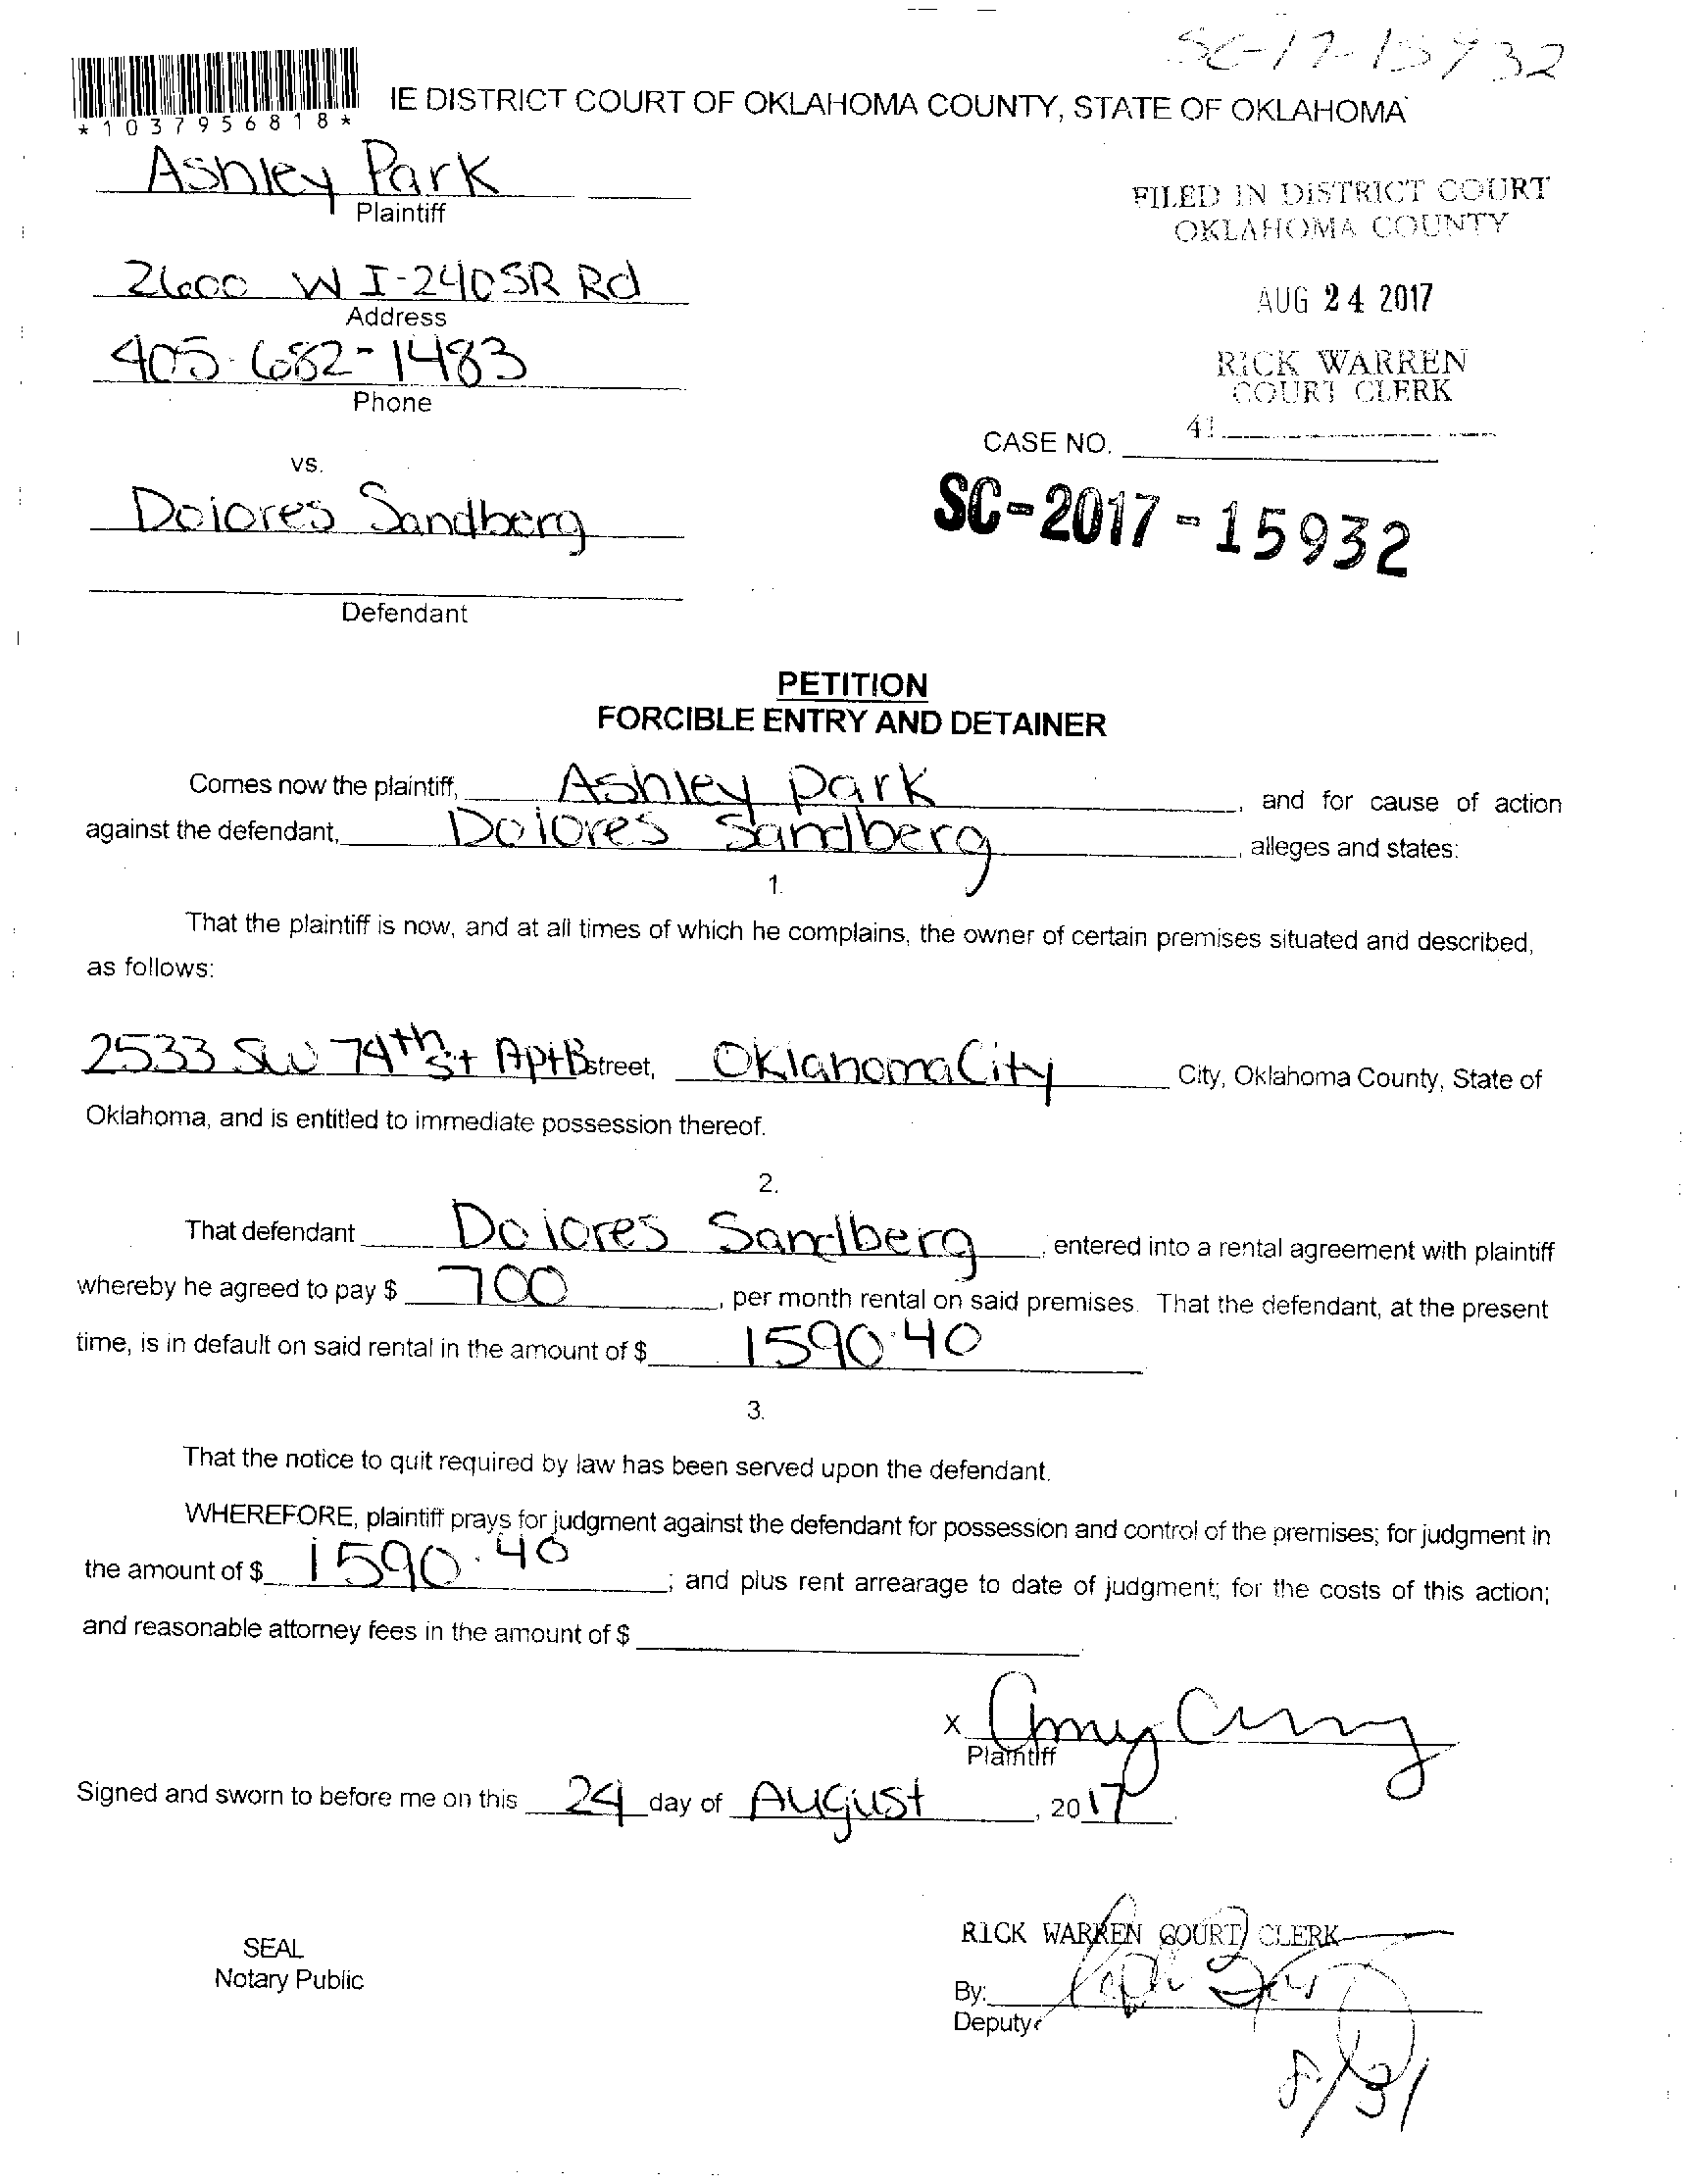 SC-17-15932
*1037956818*
IE DISTRICT COURT OF OKLAHOMA COUNTY, STATE OF OKLAHOMA
Ashley Park
Plaintiff
FILED IN DISTRICT COURT
OKLAHOMA COUNTY
2600 W I-240 SR Rd
Address
AUG 24 2017
405-682-1483
Phone
RICK WARREN
COURT CLERK
41
CASE NO.
vs.
Dolores Sandberg
SC-2017-15932
Defendant
PETITION
FORCIBLE ENTRY AND DETAINER
Comes now the plaintiff, Ashley Park, and for cause of action
against the defendant, Dolores Sandberg, alleges and states:
1.
That the plaintiff is now, and at all times of which he complains, the owner of certain premises situated and described,
as follows:
2533 SW 74th St Apt B street, Oklahoma City City, Oklahoma County, State of
Oklahoma, and is entitled to immediate possession thereof.
2.
That defendant Dolores Sandberg, entered into a rental agreement with plaintiff
whereby he agreed to pay $ 700, per month rental on said premises. That the defendant, at the present
time, is in default on said rental in the amount of $ 1590.40
3.
That the notice to quit required by law has been served upon the defendant.
WHEREFORE, plaintiff prays for judgment against the defendant for possession and control of the premises; for judgment in
the amount of $ 1590.40; and plus rent arrearage to date of judgment; for the costs of this action;
and reasonable attorney fees in the amount of $
X Amy
Plaintiff
Signed and sworn to before me on this 24 day of August, 2017.
RICK WARREN COURT CLERK
SEAL
Notary Public
By:
Deputy
8/31